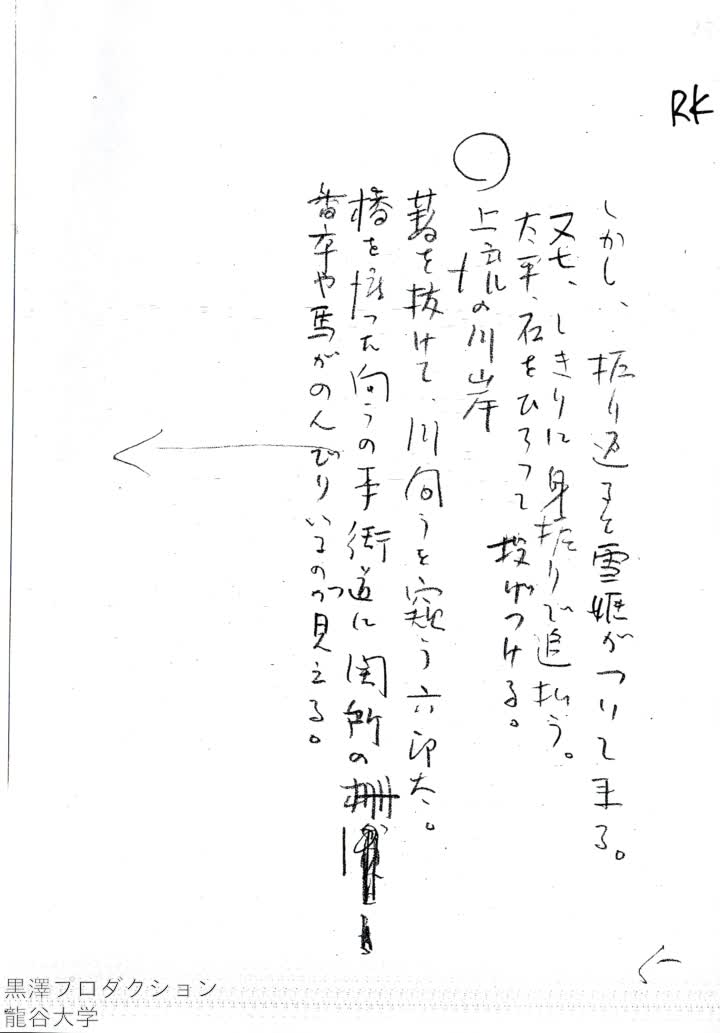 RK
しかし、振り返ると雪姫がついて来る。
又七、しきりに身振りで追払う。
太平、石をひろって投げつける。
○
上流の川岸
藪を抜けて、川向うを窺う六郎太。
橋を渡った向うの手街道に関所の柵
番卒や馬がのんびりいるのが見える。
黒澤プロダクション
龍谷大学